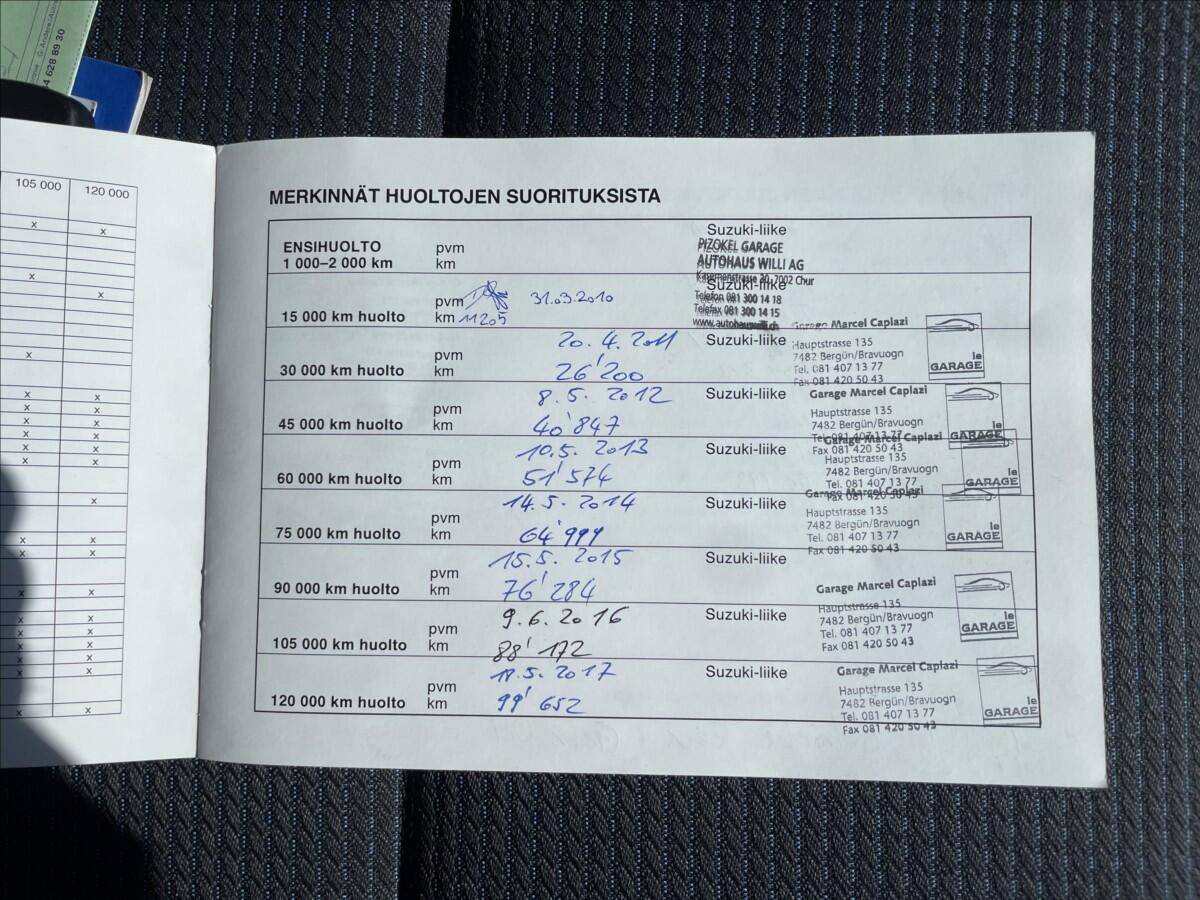 4 628 89 30
105 000 120 000
MERKINNÄT HUOLTOJEN SUORITUKSISTA
ENSIHUOLTO pvm Suzuki-liike
1 000–2 000 km km
PIZOKEL GARAGE
AUTOHAUS WILLI AG
7002 Chur
Telefon 081 300 14 18
Telefax 081 300 14 15
www.autohauswilli.ch
pvm 31.03.2010 Suzuki-liike
15 000 km huolto km 11205
pvm 20. 4. 2011 Suzuki-liike
30 000 km huolto km 26'200
Garage Marcel Caplazi
Hauptstrasse 135
7482 Bergün/Bravuogn
Tel. 081 407 13 77
Fax 081 420 50 43
le
GARAGE
pvm 8. 5. 2012 Suzuki-liike
45 000 km huolto km 40'847
Garage Marcel Caplazi
Hauptstrasse 135
7482 Bergün/Bravuogn
Tel. 081 407 13 77
Fax 081 420 50 43
le
GARAGE
pvm 10.5. 2013 Suzuki-liike
60 000 km huolto km 51'574
Garage Marcel Caplazi
Hauptstrasse 135
7482 Bergün/Bravuogn
Tel. 081 407 13 77
Fax 081 420 50 43
le
GARAGE
pvm 14.5. 2014 Suzuki-liike
75 000 km huolto km 64'999
Garage Marcel Caplazi
Hauptstrasse 135
7482 Bergün/Bravuogn
Tel. 081 407 13 77
Fax 081 420 50 43
le
GARAGE
pvm 15.5. 2015 Suzuki-liike
90 000 km huolto km 76'284
Garage Marcel Caplazi
Hauptstrasse 135
7482 Bergün/Bravuogn
Tel. 081 407 13 77
Fax 081 420 50 43
le
GARAGE
pvm 9. 6. 2016 Suzuki-liike
105 000 km huolto km 88'172
pvm 2017 Suzuki-liike
120 000 km huolto km 99'652
Garage Marcel Caplazi
Hauptstrasse 135
7482 Bergün/Bravuogn
Tel. 081 407 13 77
Fax 081 420 50 43
le
GARAGE